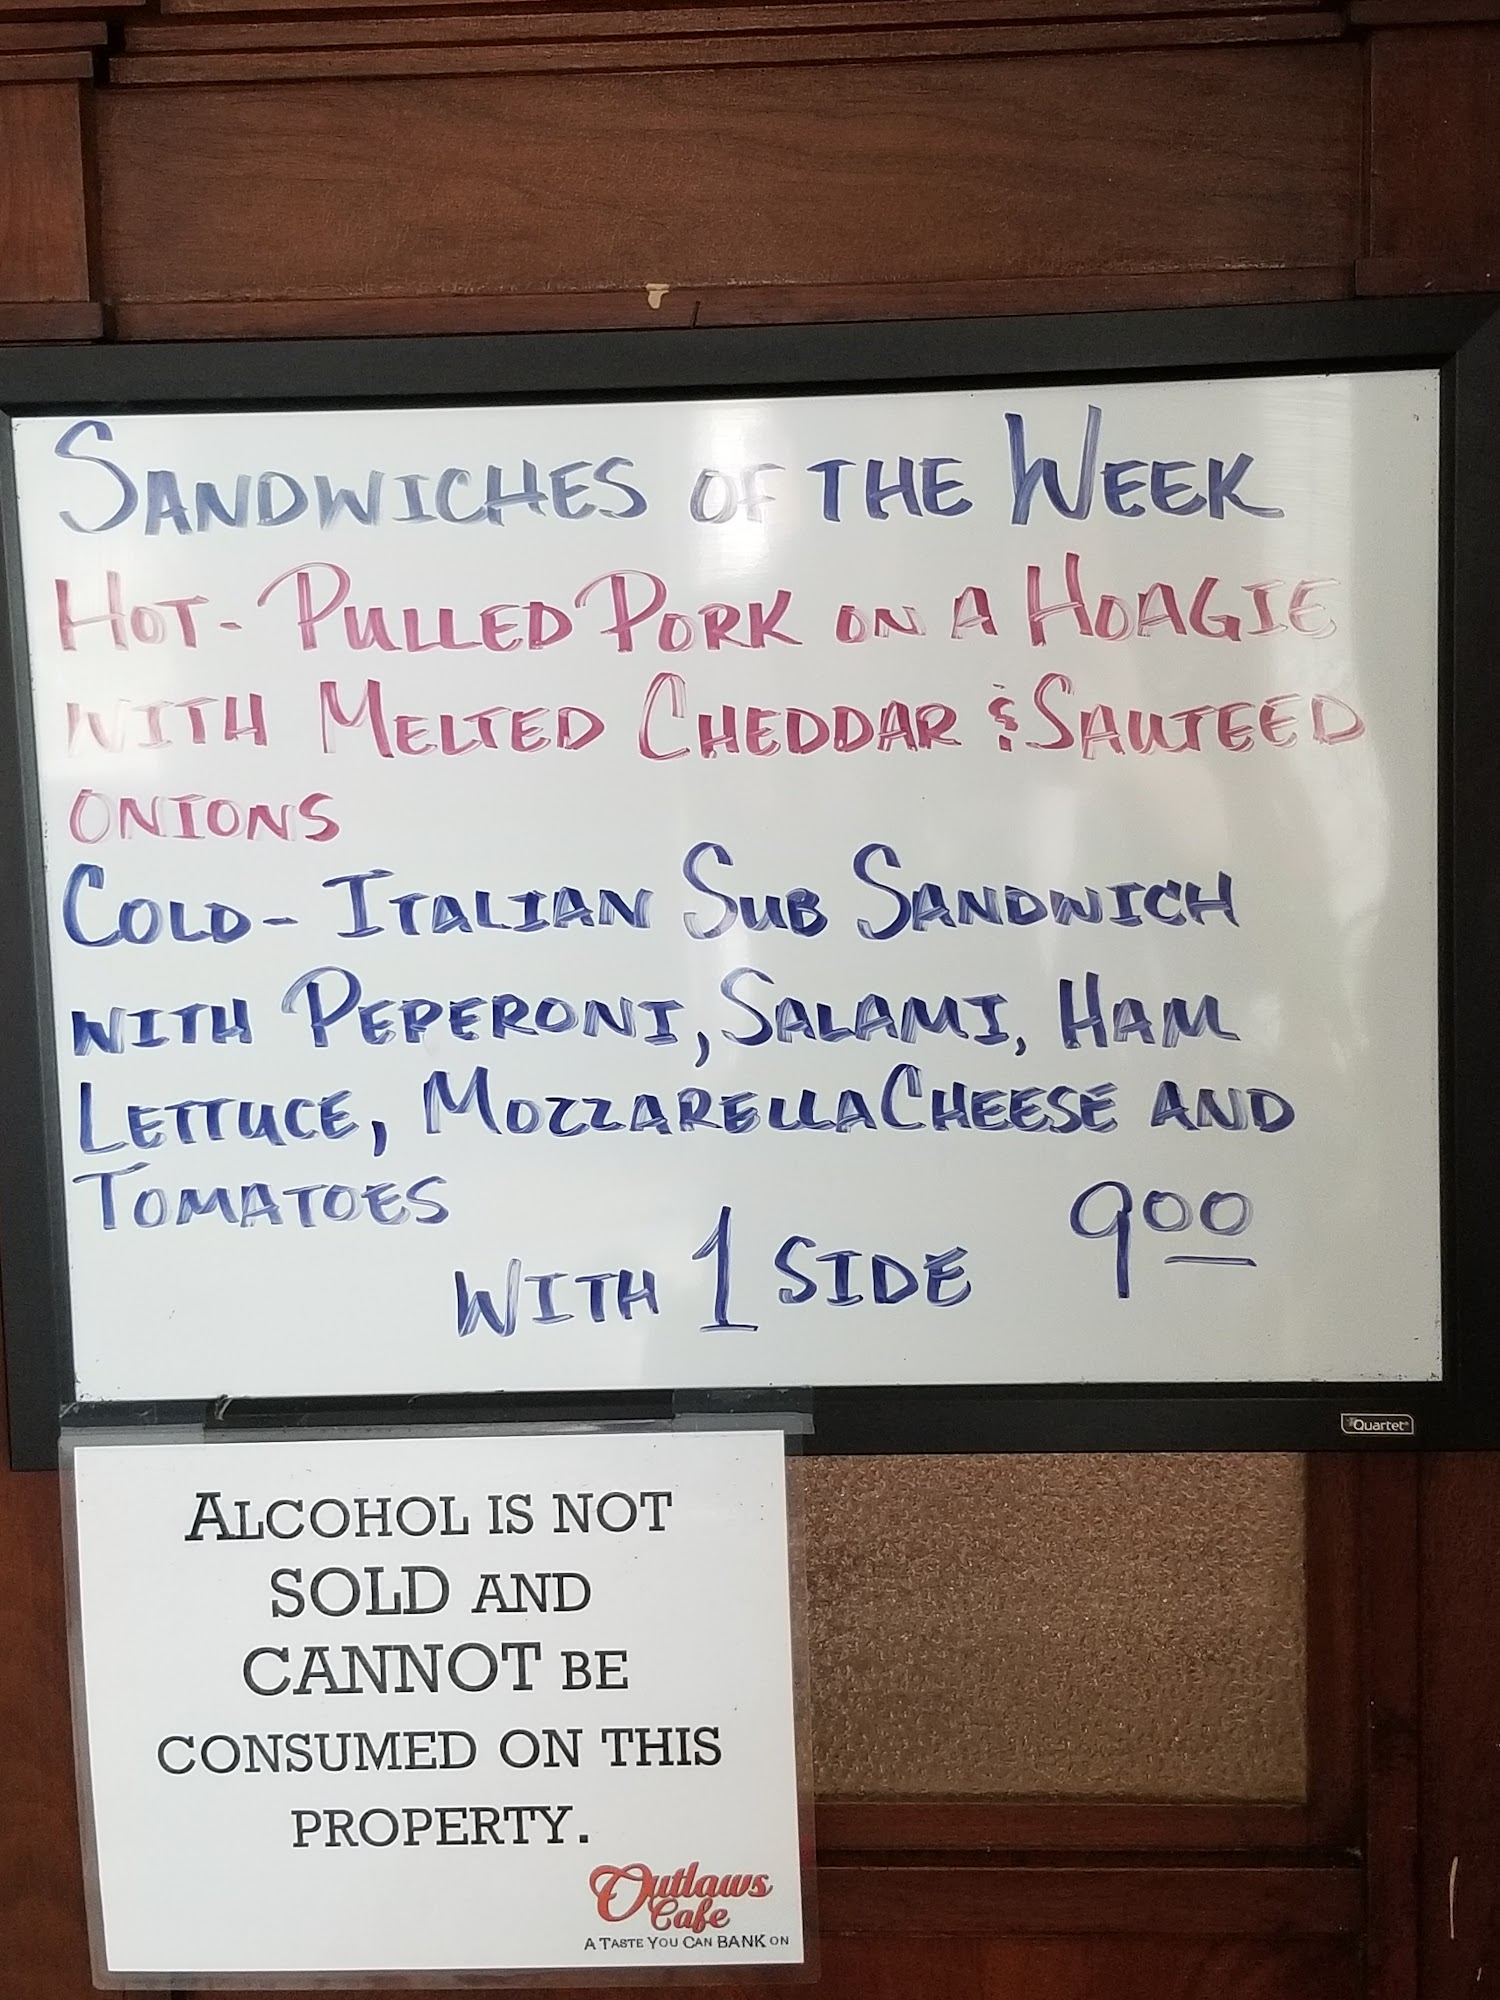 SANDWICHES OF THE WEEK
HOT- PULLED PORK ON A HOAGIE
WITH MELTED CHEDDAR & SAUTEED
ONIONS
COLD- ITALIAN SUB SANDWICH
WITH PEPERONI, SALAMI, HAM
LETTUCE, MOZZARELLA CHEESE AND
TOMATOES
WITH 1 SIDE 900
Quartet
ALCOHOL IS NOT
SOLD AND
CANNOT BE
CONSUMED ON THIS
PROPERTY.
Outlaws
Cafe
A TASTE YOU CAN BANK ON